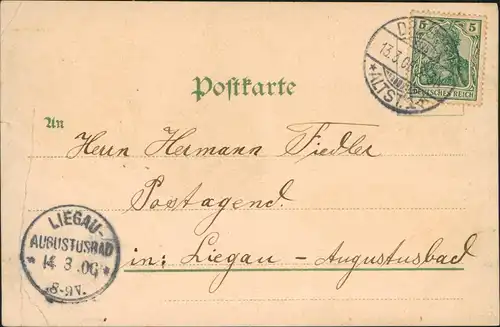 5
DEUTSCHES REICH
13.3.06
*ALTST.
Postkarte
An
Herrn Hermann Fiedler
Postagend
in: Liegau-Augustusbad
LIEGAU-
AUGUSTUSBAD
* 14 3.06 *
8-9V.